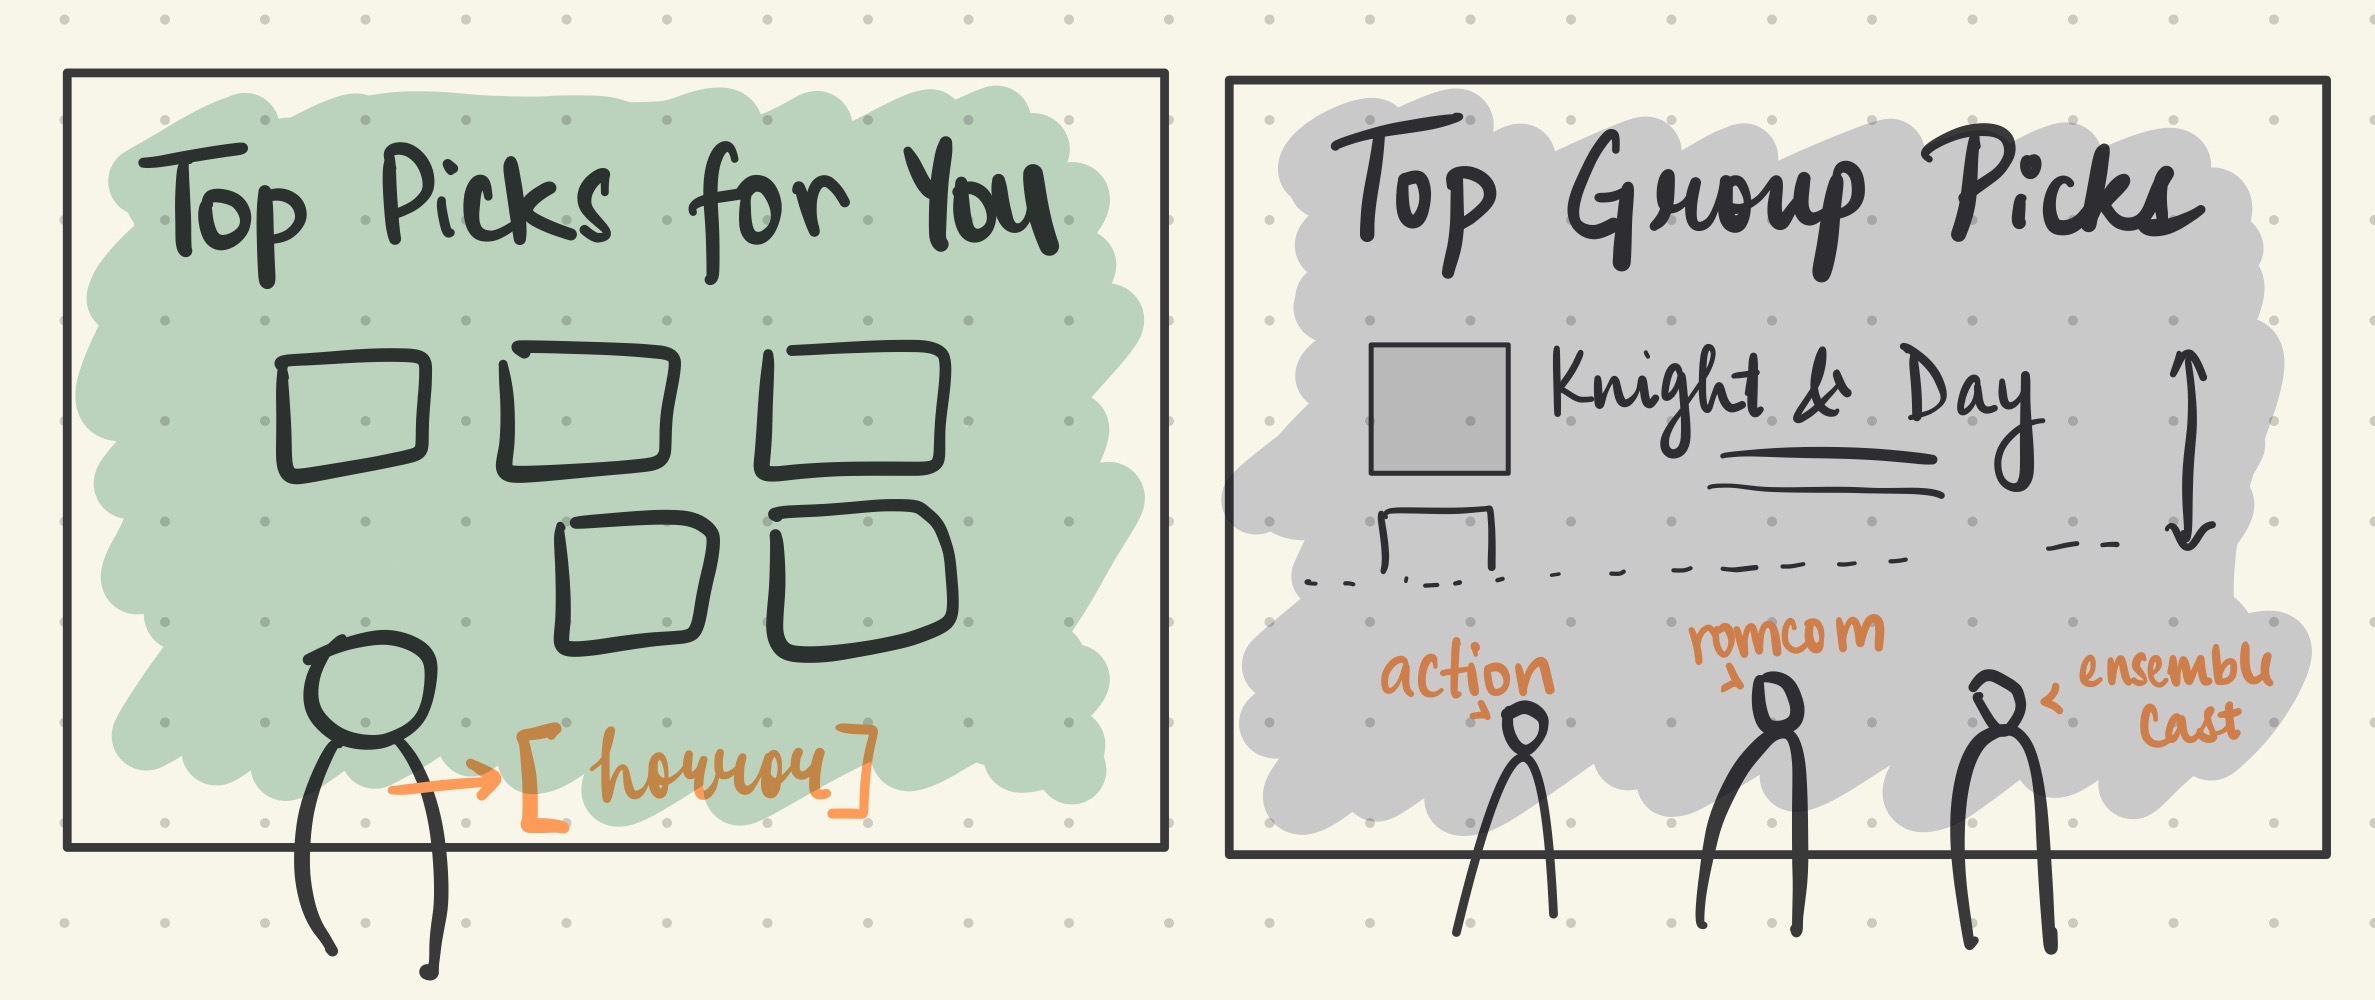 Top Picks for You
[horror]
Top Group Picks
Knight & Day
action
romcom
ensemble
cast